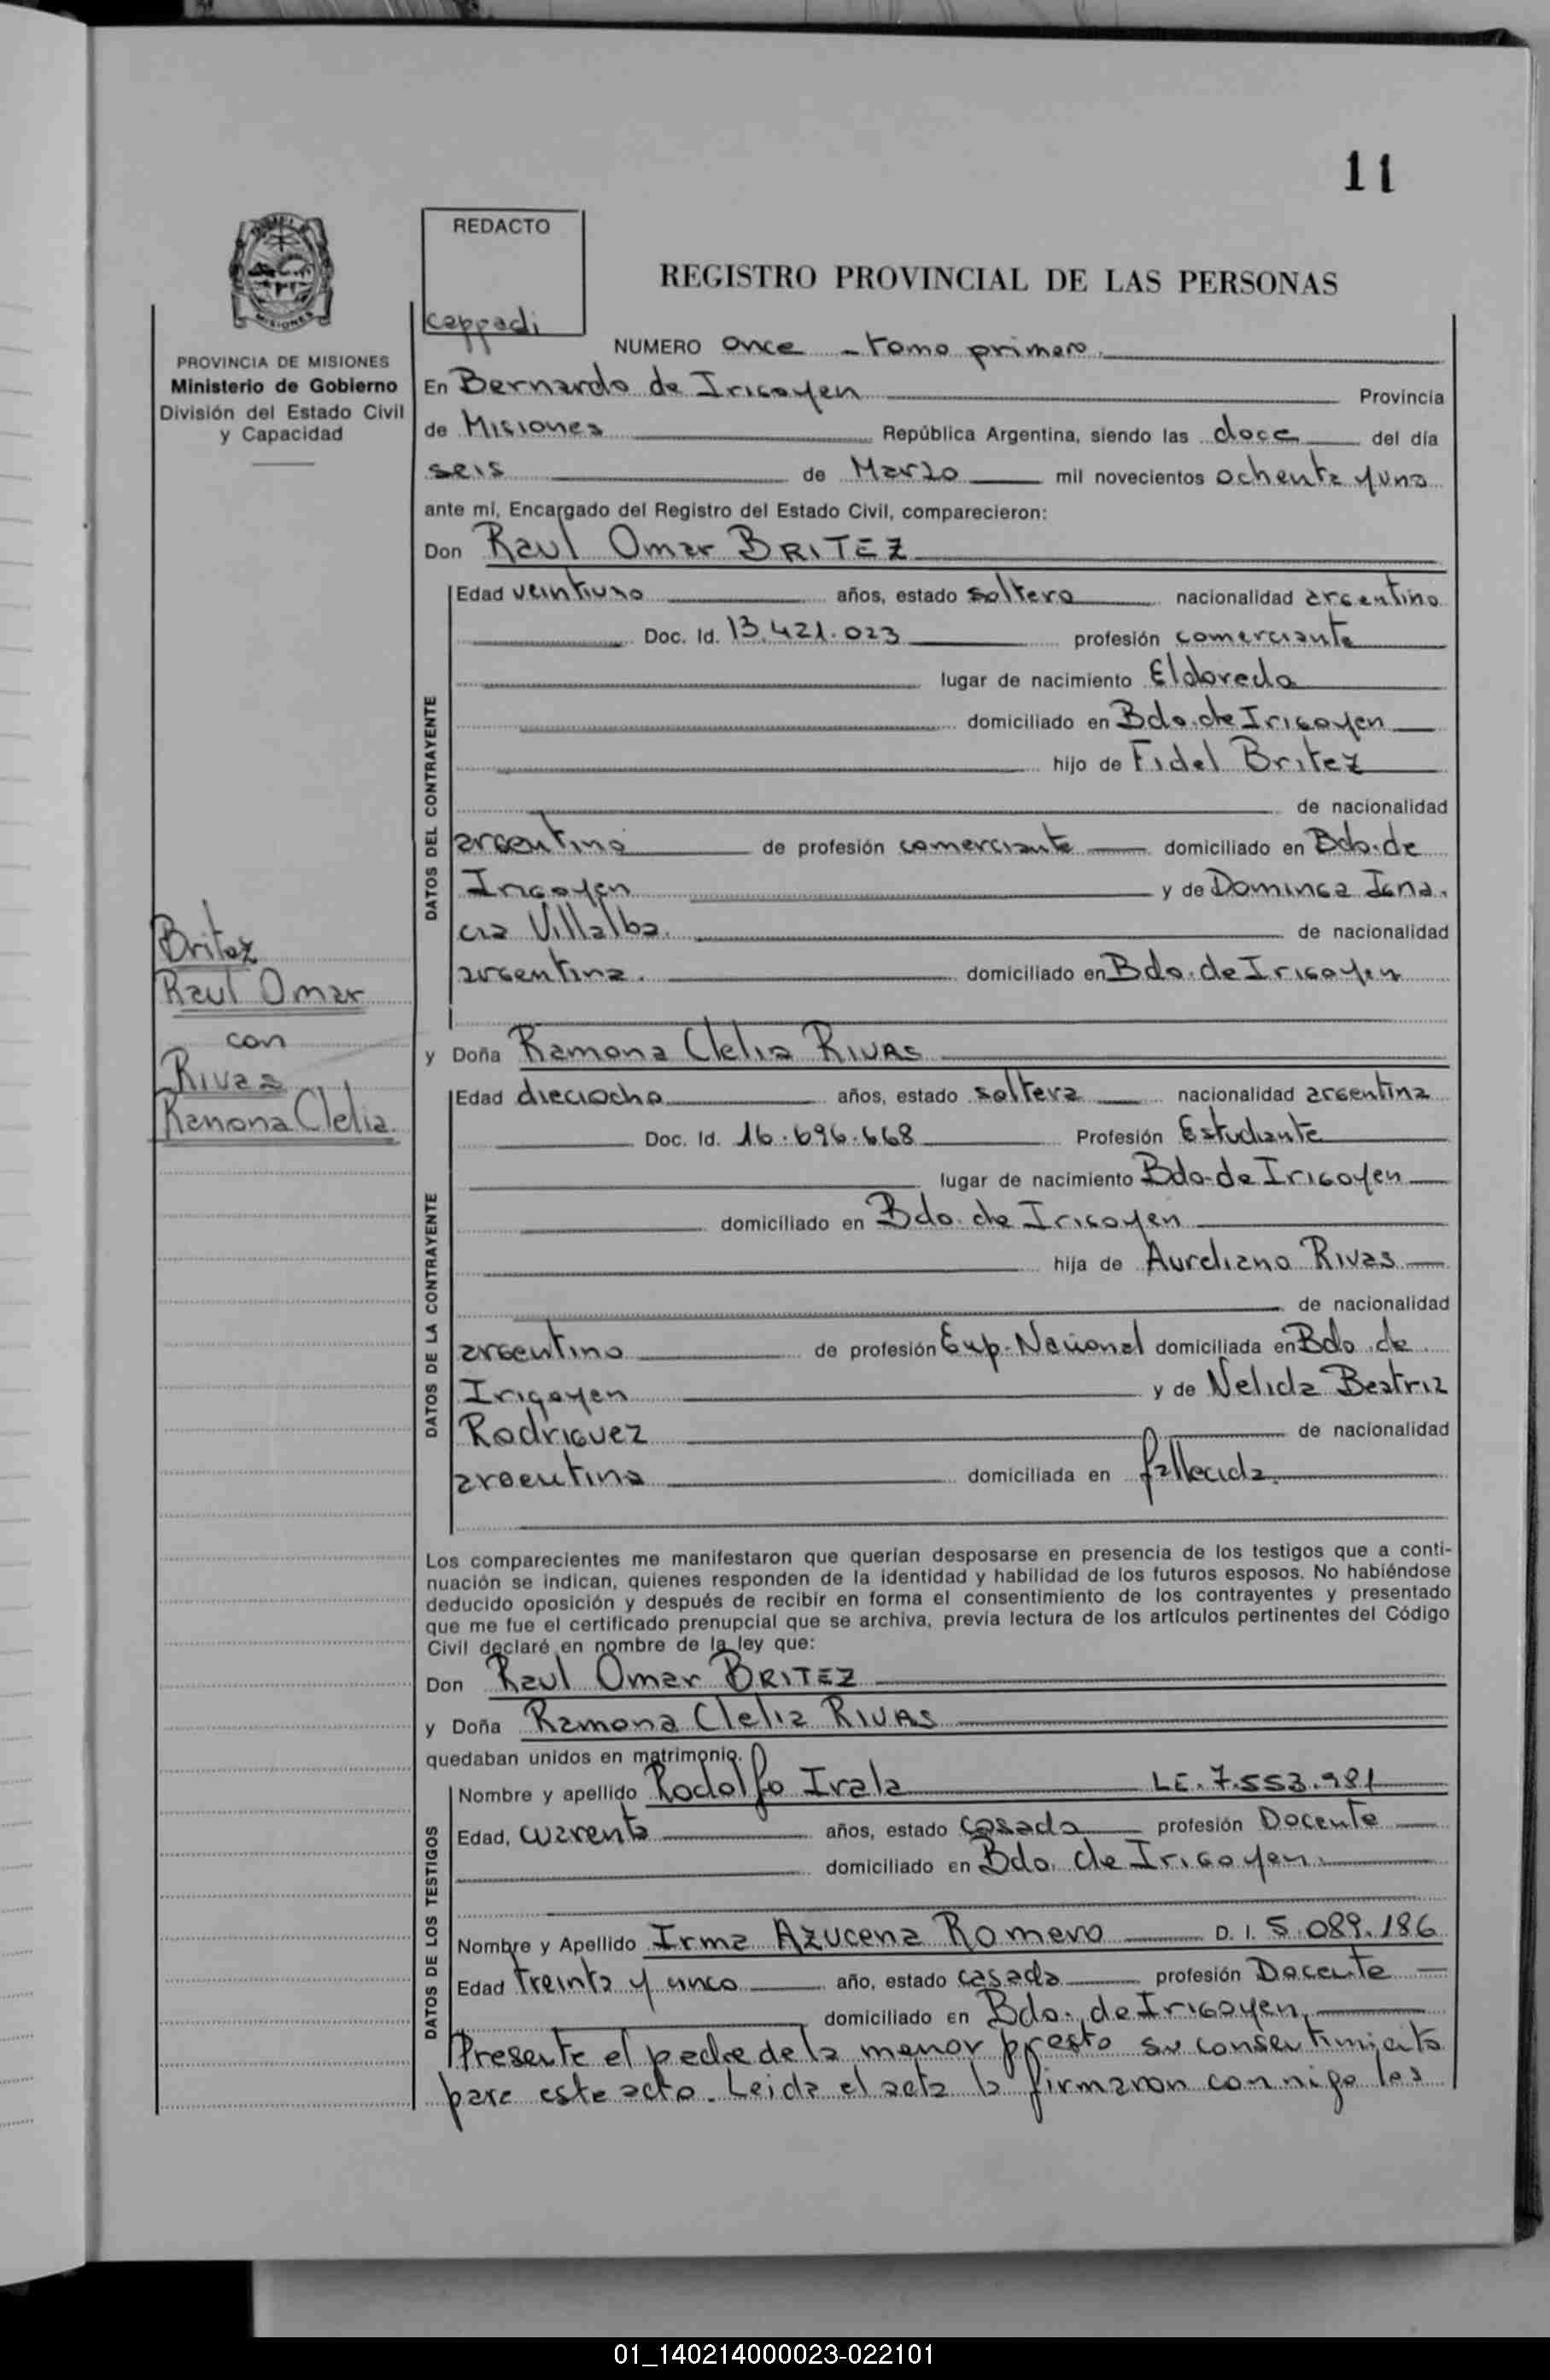 11
REDACTO
cappadi
REGISTRO PROVINCIAL DE LAS PERSONAS
PROVINCIA DE MISIONES
Ministerio de Gobierno
División del Estado Civil
y Capacidad
NUMERO once - tomo primero.
En Bernardo de Irigoyen Provincia
de Misiones República Argentina, siendo las doce del día
seis de Marzo mil novecientos ochenta y uno
ante mí, Encargado del Registro del Estado Civil, comparecieron:
Don Raul Omar BRITEZ
DATOS DEL CONTRAYENTE
Edad veintiuno años, estado soltero nacionalidad argentino
Doc. Id. 13.421.023 profesión comerciante
lugar de nacimiento Eldorado
domiciliado en Bdo. de Irigoyen
hijo de Fidel Britez
de nacionalidad
argentino de profesión comerciante domiciliado en Bdo. de
Irigoyen y de Dominga Igna.
cia Villalba. de nacionalidad
argentina. domiciliado en Bdo. de Irigoyen
Britez
Raul Omar
con
Rivas
Ramona Clelia.
y Doña Ramona Clelia RIVAS
DATOS DE LA CONTRAYENTE
Edad dieciocho años, estado soltera nacionalidad argentina
Doc. Id. 16.696.668 Profesión Estudiante
lugar de nacimiento Bdo. de Irigoyen
domiciliado en Bdo. de Irigoyen
hija de Aureliano Rivas
de nacionalidad
argentino de profesión Emp. Nacional domiciliada en Bdo. de
Irigoyen y de Nelida Beatriz
Rodriguez de nacionalidad
argentina domiciliada en fallecida.
Los comparecientes me manifestaron que querían desposarse en presencia de los testigos que a conti-
nuación se indican, quienes responden de la identidad y habilidad de los futuros esposos. No habiéndose
deducido oposición y después de recibir en forma el consentimiento de los contrayentes y presentado
que me fue el certificado prenupcial que se archiva, previa lectura de los artículos pertinentes del Código
Civil declaré en nombre de la ley que:
Don Raul Omar BRITEZ
y Doña Ramona Clelia RIVAS
quedaban unidos en matrimonio.
DATOS DE LOS TESTIGOS
Nombre y apellido Rodolfo Irala LE. 7.553.981
Edad, cuarenta años, estado casado profesión Docente
domiciliado en Bdo. de Irigoyen.
Nombre y Apellido Irma Azucena Romero D. I. 5.089.186
Edad treinta y cinco año, estado casada profesión Docente
domiciliado en Bdo. de Irigoyen.
Presente el padre de la menor presto su consentimiento
para este acto. Leida el acta la firmaron conmigo los
01_140214000023-022101